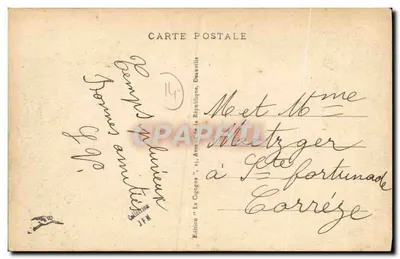 CARTE POSTALE
Temps pluvieux
Bonnes amitiés
G P.
14
Edition "La Cigogne", 21, Avenue de la République, Deauville
M et Mme
Metzger
à Ste fortunade
Corrèze
Collection
JFM
CPAPHIL